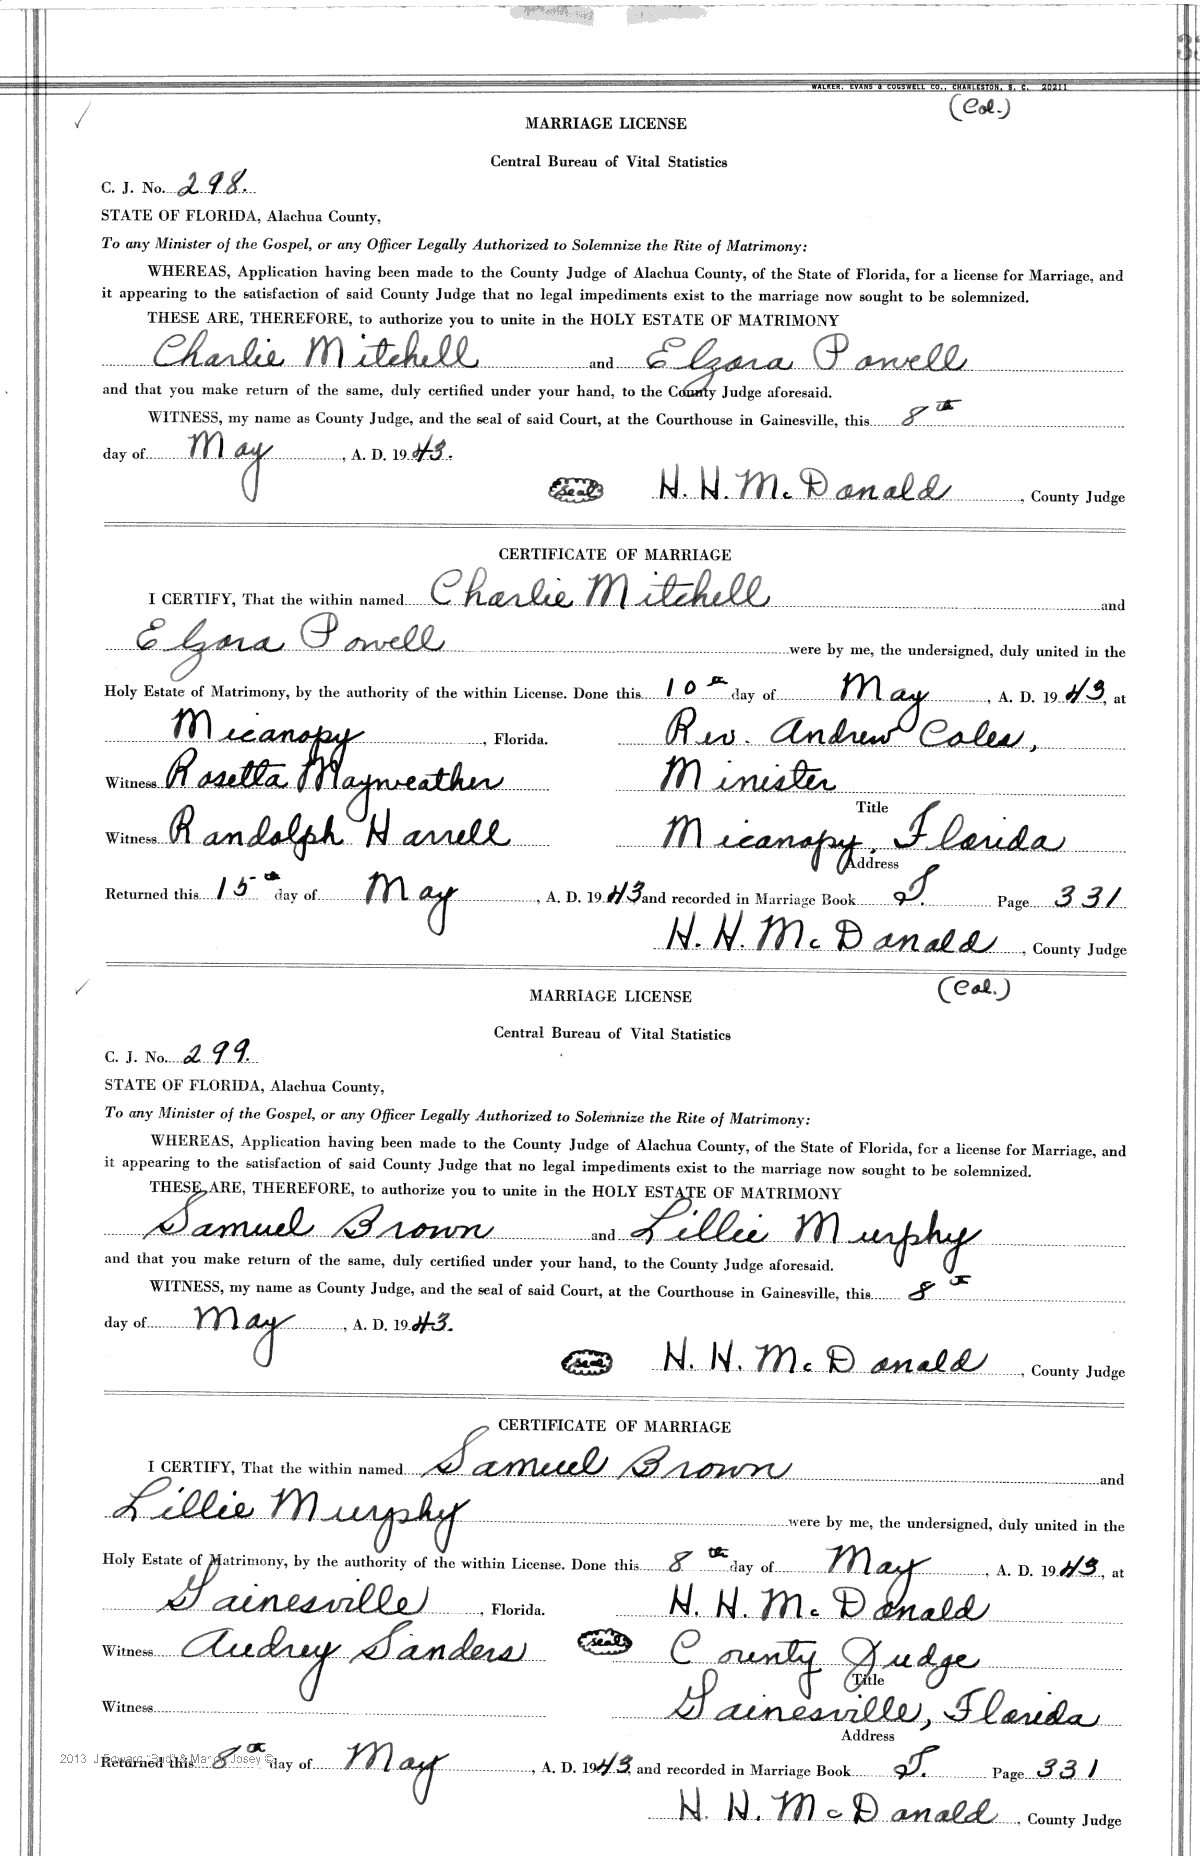 WALKER, EVANS & COGSWELL CO., CHARLESTON, S. C. 20211
(Col.)
MARRIAGE LICENSE
Central Bureau of Vital Statistics
C. J. No. 298.
STATE OF FLORIDA, Alachua County,
To any Minister of the Gospel, or any Officer Legally Authorized to Solemnize the Rite of Matrimony:
WHEREAS, Application having been made to the County Judge of Alachua County, of the State of Florida, for a license for Marriage, and
it appearing to the satisfaction of said County Judge that no legal impediments exist to the marriage now sought to be solemnized.
THESE ARE, THEREFORE, to authorize you to unite in the HOLY ESTATE OF MATRIMONY
Charlie Mitchell and Elzora Powell
and that you make return of the same, duly certified under your hand, to the County Judge aforesaid.
WITNESS, my name as County Judge, and the seal of said Court, at the Courthouse in Gainesville, this 8th
day of May, A. D. 1943.
seal H. H. McDonald, County Judge
CERTIFICATE OF MARRIAGE
I CERTIFY, That the within named Charlie Mitchell and
Elzora Powell were by me, the undersigned, duly united in the
Holy Estate of Matrimony, by the authority of the within License. Done this 10th day of May, A. D. 1943, at
Micanopy, Florida. Rev. Andrew Coles,
Witness Rosetta Mayweather Minister
Title
Witness Randolph Harrell Micanopy, Florida
Address
Returned this 15th day of May, A. D. 1943 and recorded in Marriage Book T. Page 331
H. H. McDonald, County Judge
(Col.)
MARRIAGE LICENSE
Central Bureau of Vital Statistics
C. J. No. 299.
STATE OF FLORIDA, Alachua County,
To any Minister of the Gospel, or any Officer Legally Authorized to Solemnize the Rite of Matrimony:
WHEREAS, Application having been made to the County Judge of Alachua County, of the State of Florida, for a license for Marriage, and
it appearing to the satisfaction of said County Judge that no legal impediments exist to the marriage now sought to be solemnized.
THESE ARE, THEREFORE, to authorize you to unite in the HOLY ESTATE OF MATRIMONY
Samuel Brown and Lillie Murphy
and that you make return of the same, duly certified under your hand, to the County Judge aforesaid.
WITNESS, my name as County Judge, and the seal of said Court, at the Courthouse in Gainesville, this 8th
day of May, A. D. 1943.
seal H. H. McDonald, County Judge
CERTIFICATE OF MARRIAGE
I CERTIFY, That the within named Samuel Brown and
Lillie Murphy were by me, the undersigned, duly united in the
Holy Estate of Matrimony, by the authority of the within License. Done this 8th day of May, A. D. 1943, at
Gainesville, Florida. H. H. McDonald
Witness Audrey Sanders seal County Judge
Title
Witness Gainesville, Florida
Address
Returned this 8th day of May, A. D. 1943 and recorded in Marriage Book T. Page 331
H. H. McDonald, County Judge